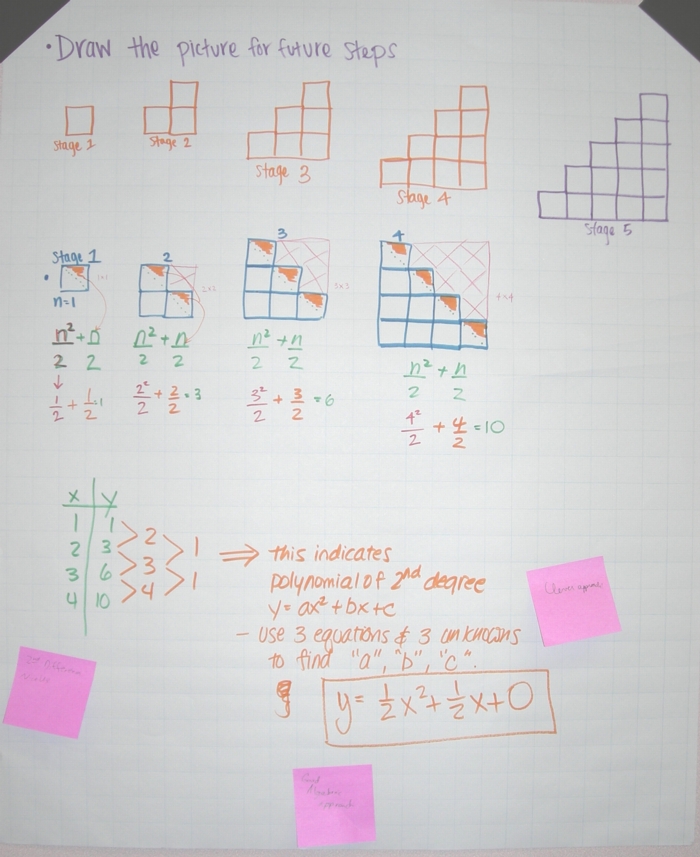 • Draw the picture for future steps
Stage 1
Stage 2
Stage 3
Stage 4
Stage 5
Stage 1
2
3
4
n=1
1x1
2x2
3x3
4x4
n²/2 + n/2
n²/2 + n/2
n²/2 + n/2
n²/2 + n/2
1/2 + 1/2 = 1
2²/2 + 2/2 = 3
3²/2 + 3/2 = 6
4²/2 + 4/2 = 10
x | y
1 | 1
2 | 3
3 | 6
4 | 10
> 2
> 3
> 4
> 1
> 1
⇒ this indicates
polynomial of 2nd degree
y = ax² + bx + c
– Use 3 equations & 3 unknowns
to find "a", "b", "c".
y = 1/2 x² + 1/2 x + 0